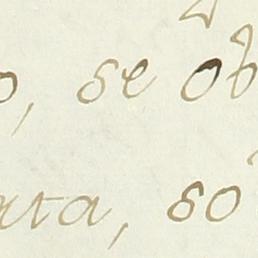 o, se ob
ata, so